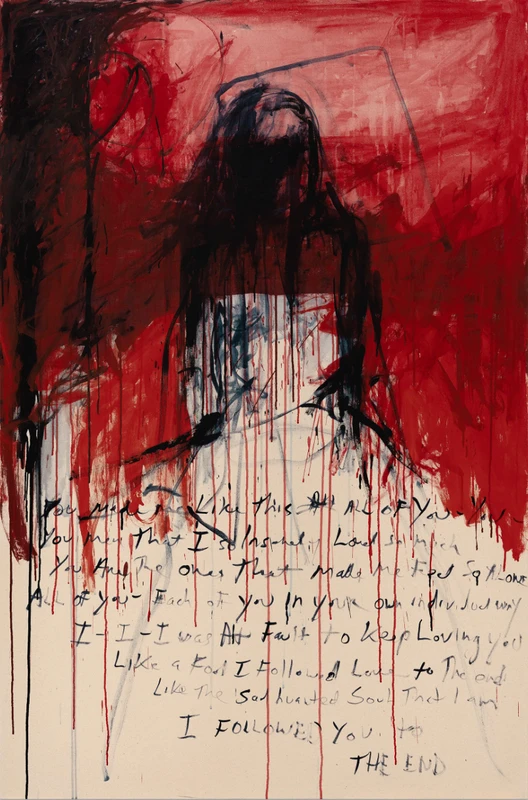 You made me Like This All All of You - You
You men That I so Insanely Loved so much
You Are The ones That made me Feel So ALONE
All of You - Each of You In your own individual way
I - I - I was At Fault to Keep Loving you
Like a Fool I Followed Love to The end
Like The Sad haunted Soul That I am
I FOLLOWED You to
THE END